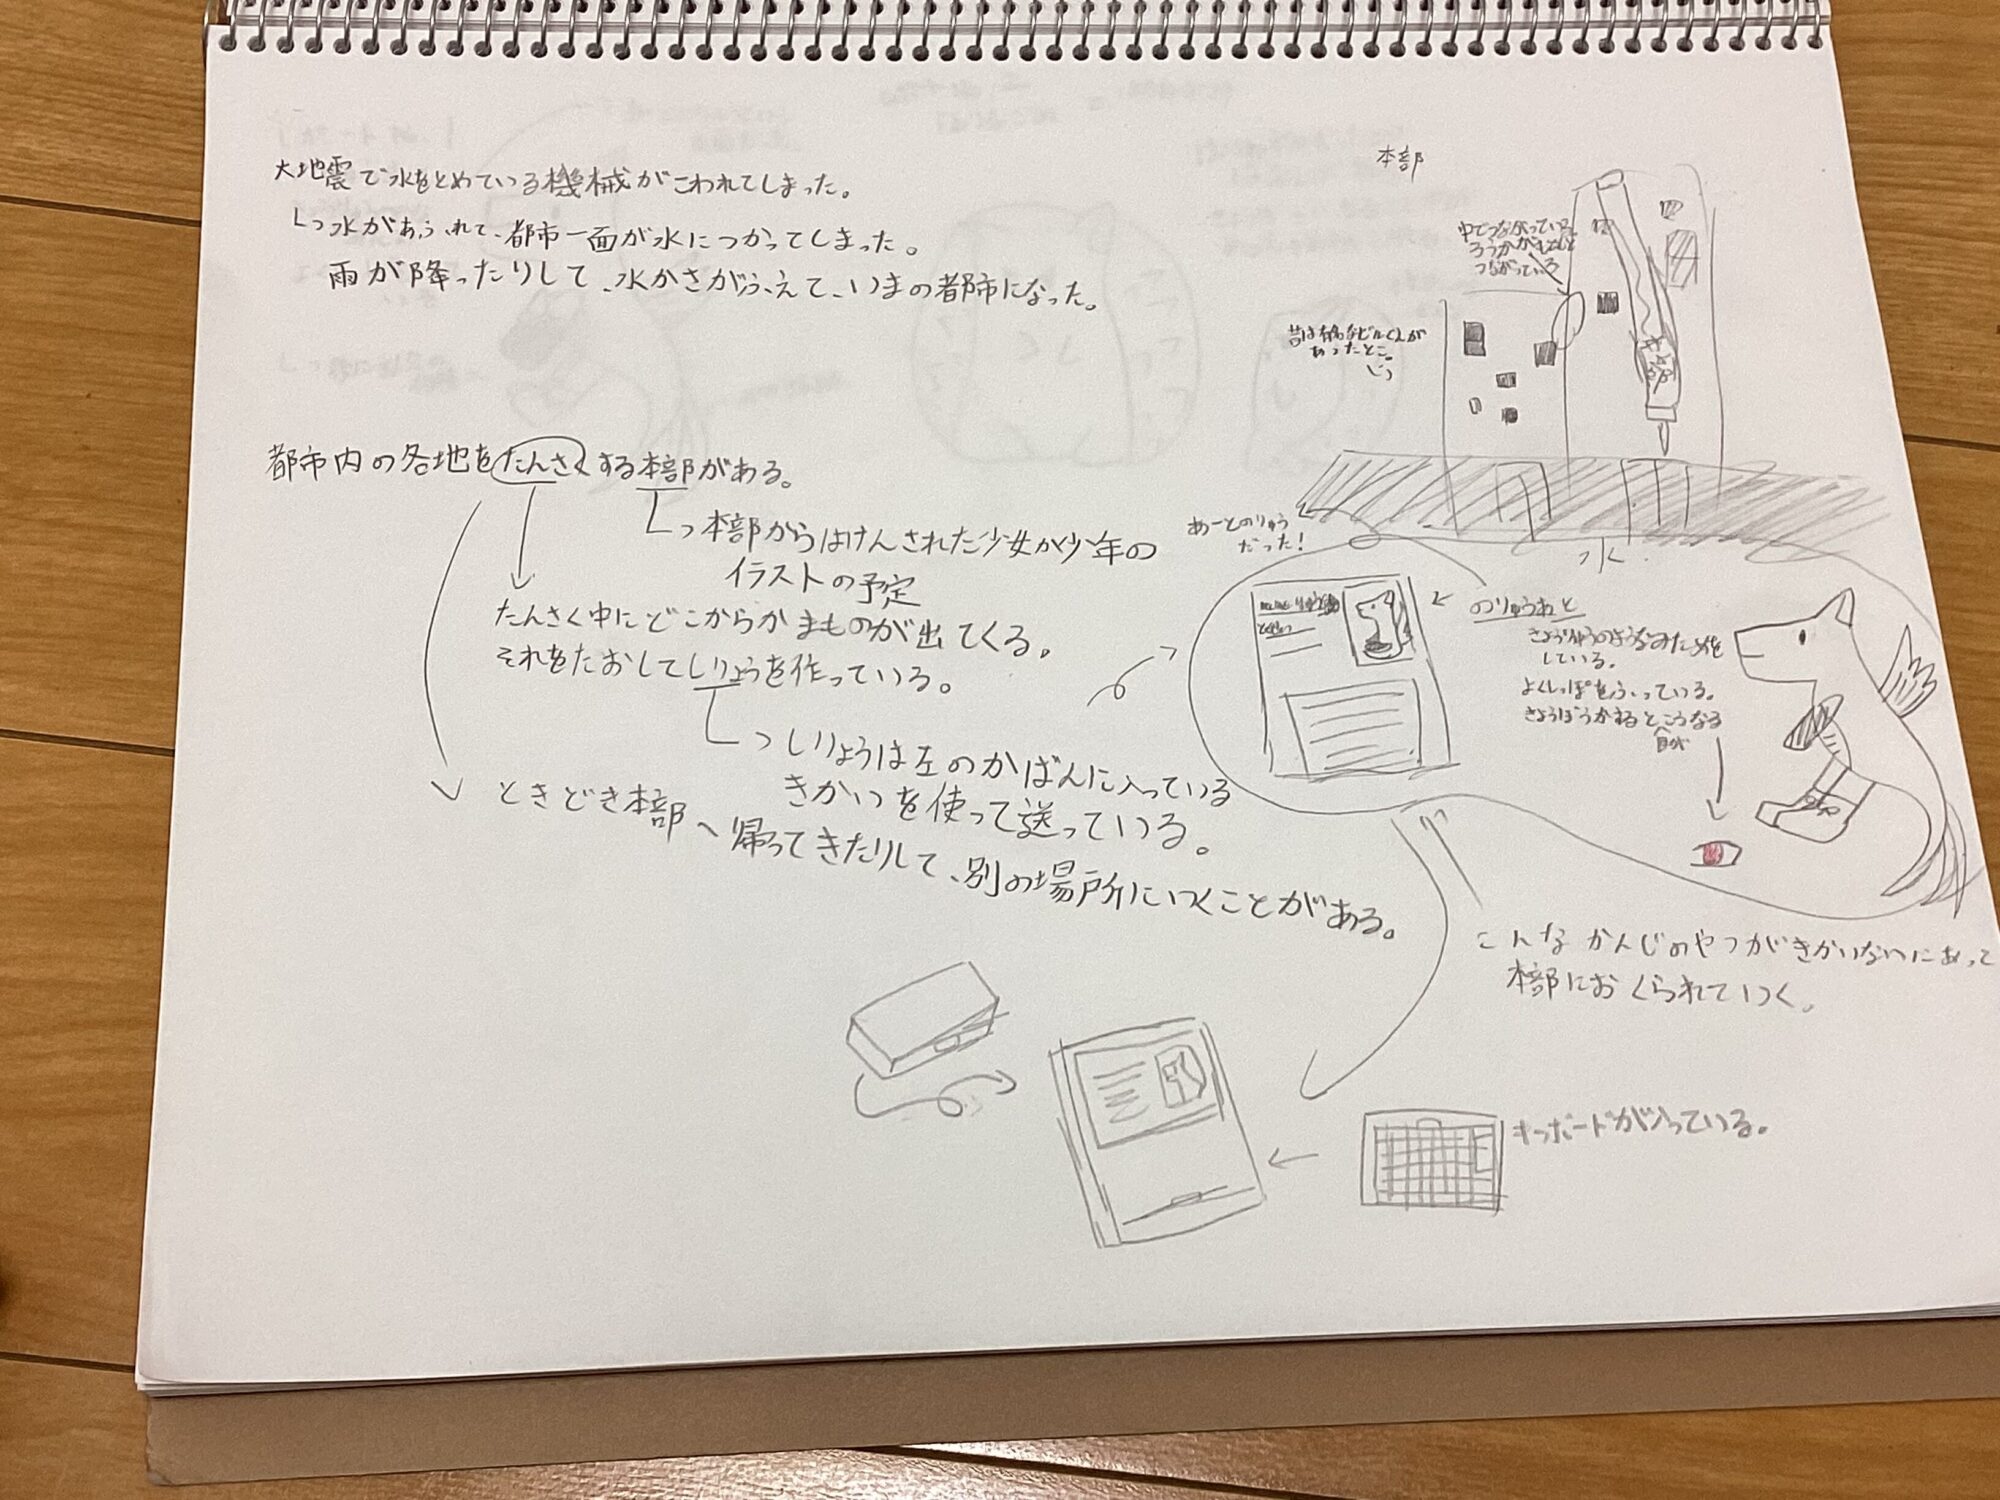 大地震で水をとめている機械がこわれてしまった。
水があふれて、都市一面が水につかってしまった。
雨が降ったりして、水かさがふえて、いまの都市になった。
都市内の各地をたんさくする本部がある。
本部からはけんされた少女か少年の
イラストの予定
たんさく中にどこからかまものが出てくる。
それをたおしてしりょうを作っている。
しりょうは左のかばんに入っている
きかいを使って送っている。
ときどき本部へ帰ってきたりして、別の場所にいくことがある。
本部
中でつながっている。
ろうかが
つながっている
昔は有名なビルくんが
あったとこ。
あーとのりゅう
だった!
水
のりゅうねと
きょうりゅうのようなみためを
している。
よくしっぽをふっている。
きょうぼうかするとこうなる
目が
こんなかんじのやつがきかいないにあって
本部におくられていく。
キーボードが入っている。